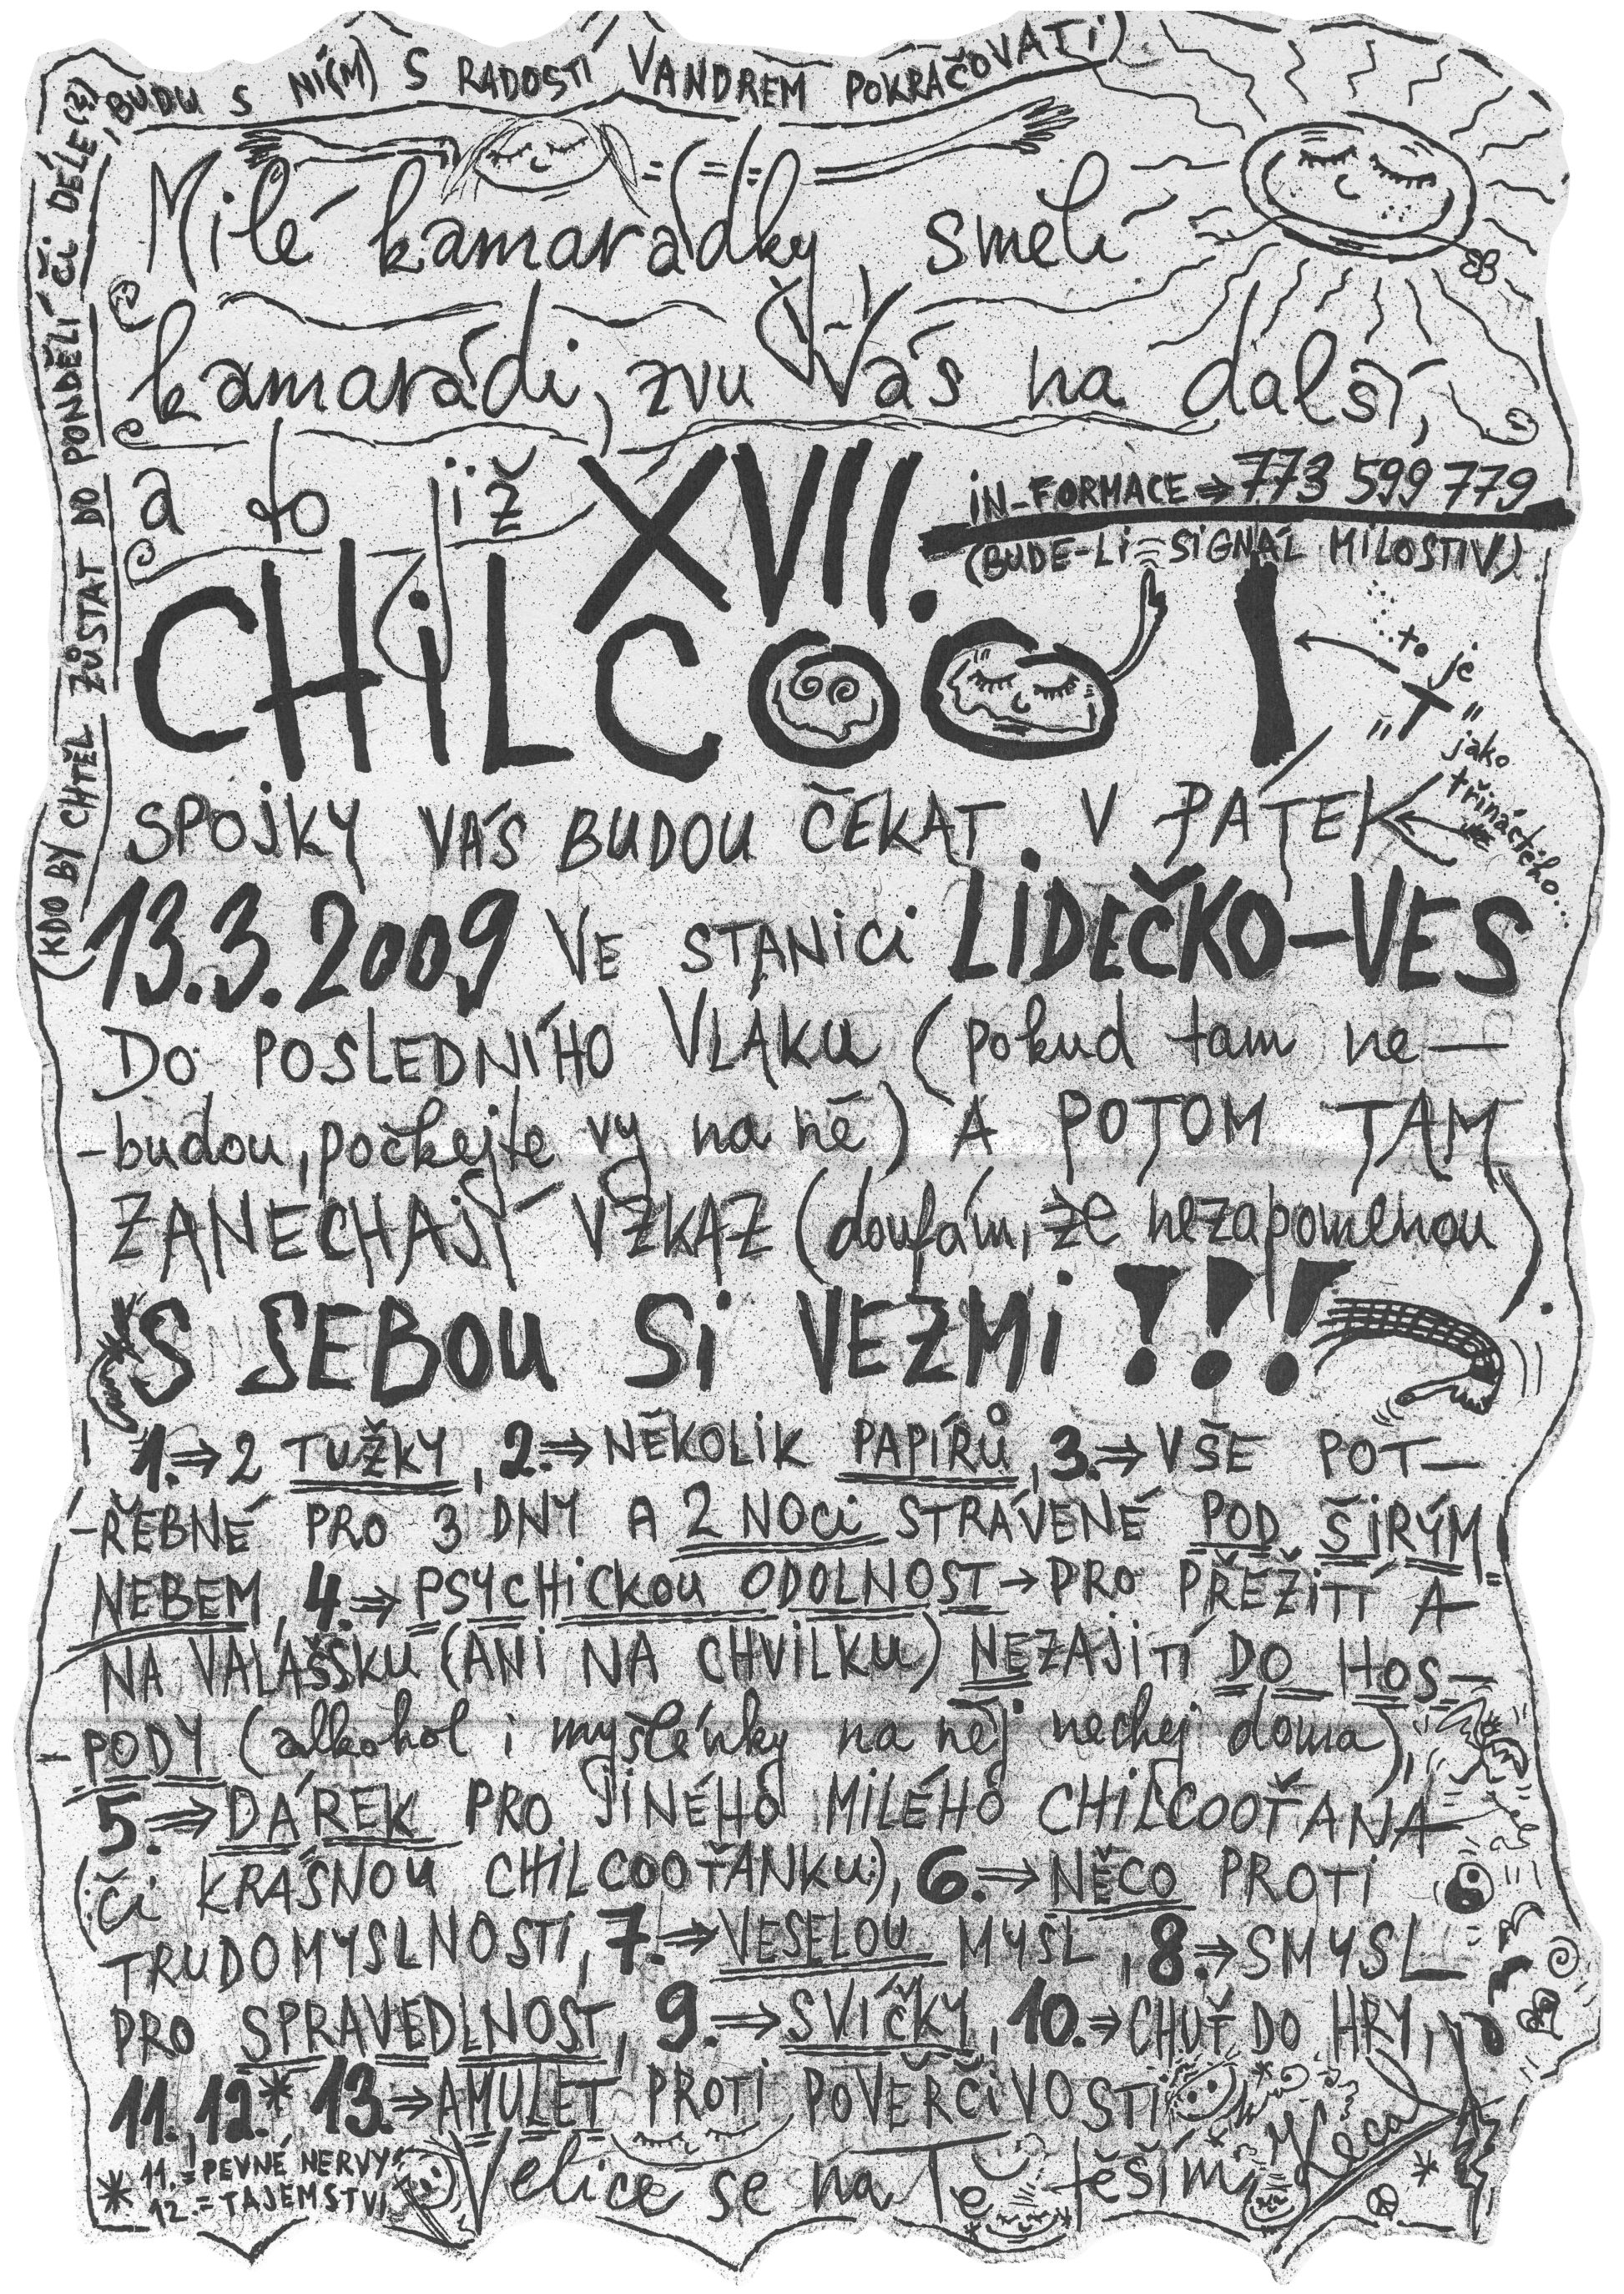 (KDO BY CHTĚL ZŮSTAT DO PONDĚLÍ ČI DÉLE(3), BUDU S NÍ(M) S RADOSTÍ VANDREM POKRAČOVATI)
Milé kamarádky, smělí
kamarádi, zvu Vás na další,
a to již XVII.
IN-FORMACE ⇒ 773 599 779
(BUDE-LI SIGNÁL MILOSTIV)
CHiLCOOT
...to je "T" jako třináctého...
SPOJKY VÁS BUDOU ČEKAT V PÁTEK
13.3.2009 VE STANICI LIDEČKO-VES
DO POSLEDNÍHO VLAKU (pokud tam ne-
-budou, počkejte vy na ně) A POTOM TAM
ZANECHAJÍ VZKAZ (doufám, že nezapomenou)
S SEBOU SI VEZMI !!!
1.⇒ 2 TUŽKY, 2.⇒ NĚKOLIK PAPÍRŮ, 3.⇒ VŠE POT-
-ŘEBNÉ PRO 3 DNY A 2 NOCI STRÁVENÉ POD ŠIRÝM
NEBEM, 4.⇒ PSYCHICKOU ODOLNOST → PRO PŘEŽITÍ A
NA VALAŠSKU (ANI NA CHVILKU) NEZAJITÍ DO HOS-
PODY (alkohol i myšlénky na něj nechej doma),
5.⇒ DÁREK PRO JINÉHO MILÉHO CHILCOOŤANA
(ČI KRÁSNOU CHILCOOŤANKU), 6.⇒ NĚCO PROTI
TRUDOMYSLNOSTI, 7.⇒ VESELOU MYSL, 8.⇒ SMYSL
PRO SPRAVEDLNOST, 9.⇒ SVÍČKY, 10.⇒ CHUŤ DO HRY,
11., 12.* 13.⇒ AMULET PROTI POVĚRČIVOSTI
* 11.= PEVNÉ NERVY
12.= TAJEMSTVÍ
Velice se na Tě těším, Keca